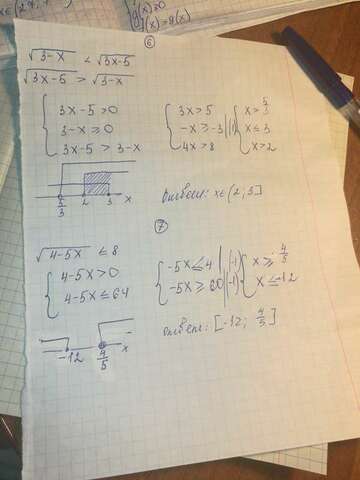 g(x)≥0
(x)=g(x)
6
√3-x < √3x-5
√3x-5 > √3-x
{ 3x-5>0
3-x≥0
3x-5>3-x
{ 3x>5
-x≥-3 |(
4x>8
{ x>5/3
x≤3
x>2
5/3 2 3 x
Ответ: x∈(2; 3]
7
√4-5x ≤8
{ 4-5x>0
4-5x≤64
{ -5x≤4 |(-1)
-5x≥60 |(-1)
{ x≥-4/5
x≤-12
-12 4/5 x
ответ: [-12; 4/5]